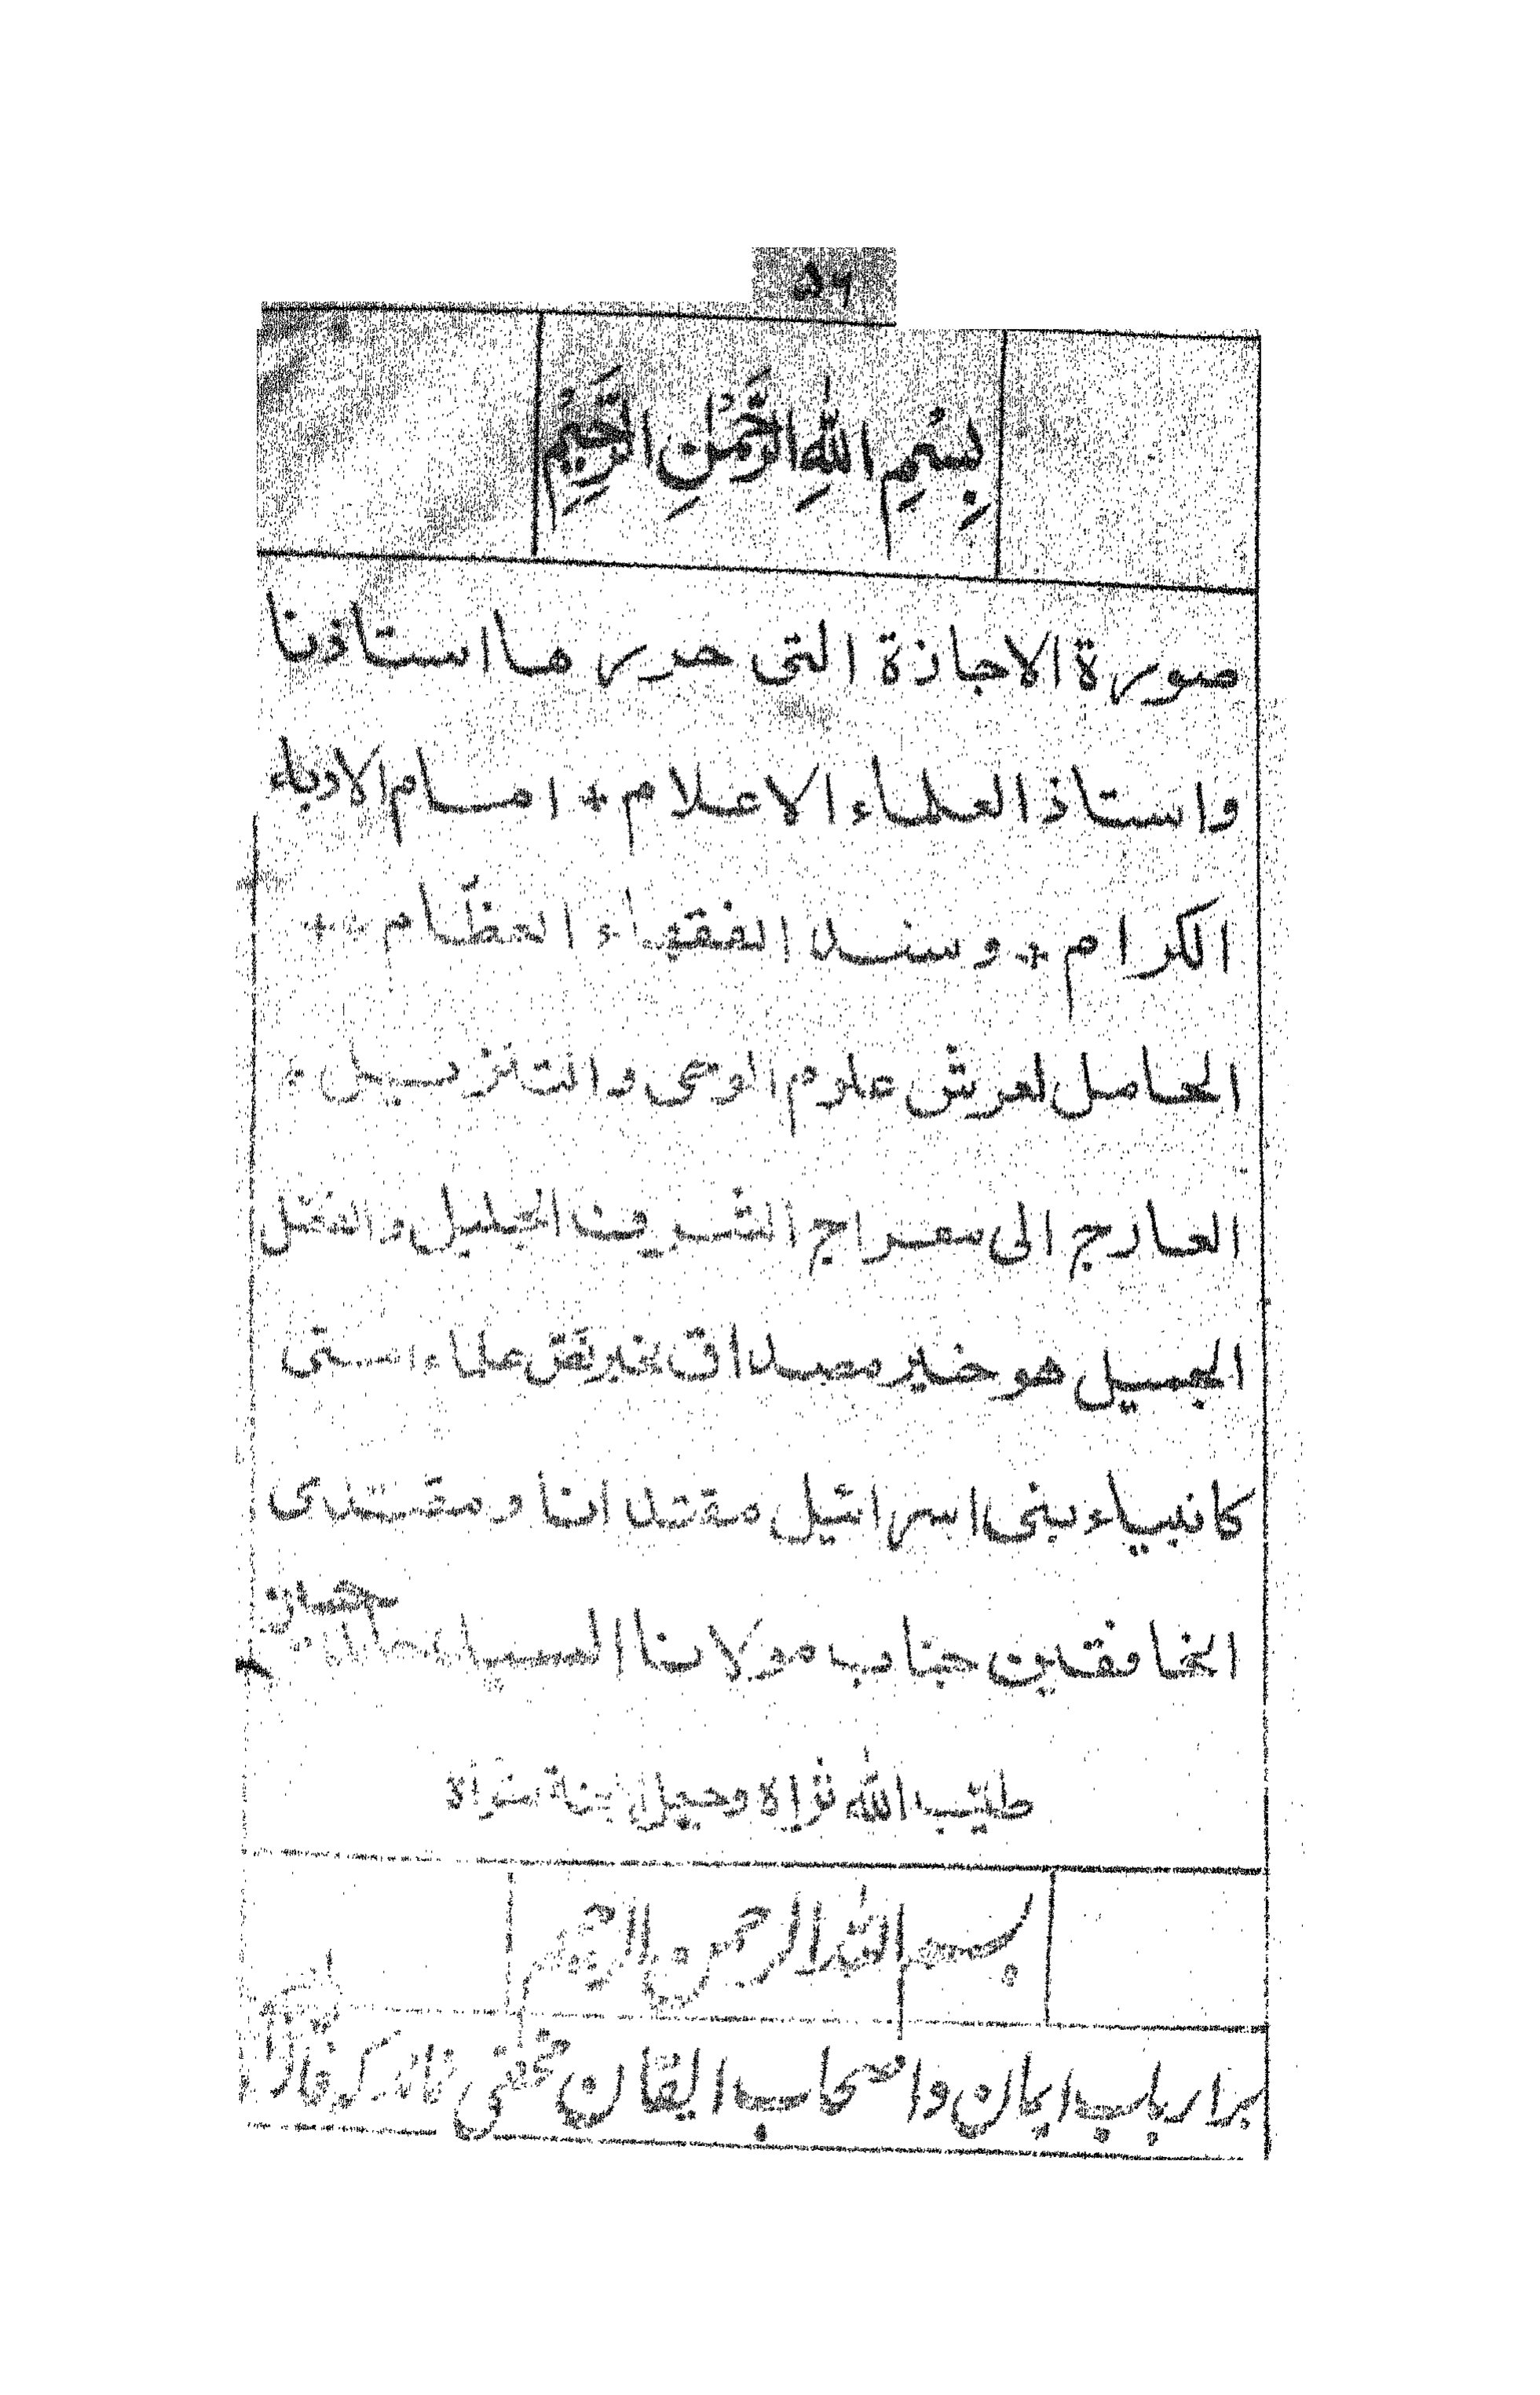 ۵۶
بِسْمِ اللهِ الرَّحْمٰنِ الرَّحِيْمِ
صورة الاجازة التى حرر ها استاذنا
واستاذ العلماء الاعلام + امام الادباء
الكرام + و سند الفقهاء العظّام +
الحامل لعرش علوم الوحى والتنزيل
العارج الى معراج الشرف الجليل والفضل
الجميل هو خير مصداق لخبر علماء امتى
كانبياء بنى اسرائيل مقتدانا ومقتدى
الخافقين جناب مولانا السيد حسين
طيّب الله ثراه وجعل الجنة مثواه
بسم الله الرحمن الرحيم
برارباب ايمان واصحاب ايقان مخفى نماند كه